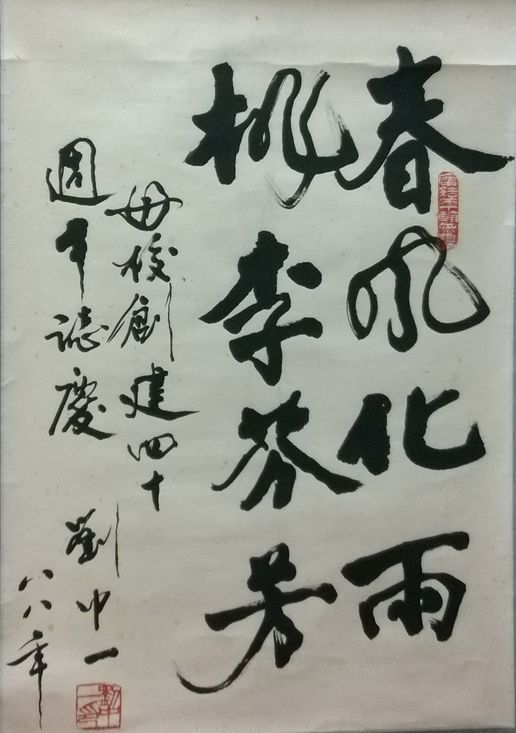 春风化雨
桃李芬芳
母校創建四十
週年誌慶
劉中一
八八年